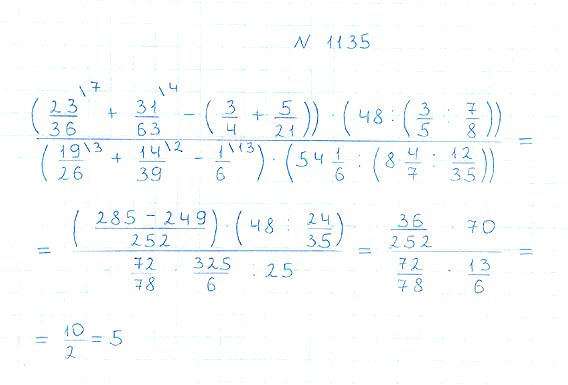 N 1135
((23/36)\7 + (31/63)\4 − (3/4 + 5/21)) · (48 : (3/5 : 7/8)) / ((19/26)\3 + (14/39)\2 − (1/6)\13) · (54 1/6 : (8 4/7 : 12/35)) =
= ((285 − 249)/252) · (48 : 24/35) / 72/78 · 325/6 : 25 = 36/252 · 70 / 72/78 · 13/6 =
= 10/2 = 5